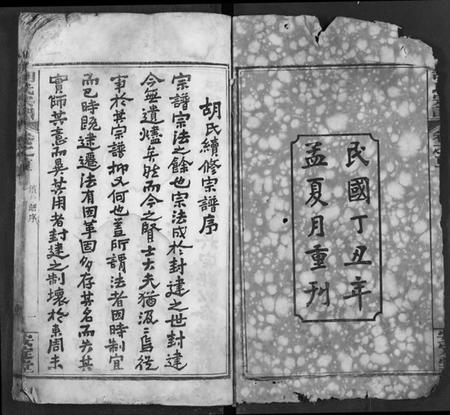 民國丁丑年
孟夏月重刊
胡氏續修宗譜序
宗譜宗法之餘也宗法成於封建之世封建
今無遺燼矣然而今之賢士大夫猶汲汲焉從
事於其宗譜抑又何也蓋所謂法者因時制宜
而已時既建遷法有因革固多存其名而失其
實師其意而異其用者封建之制壞於東周未
安定堂